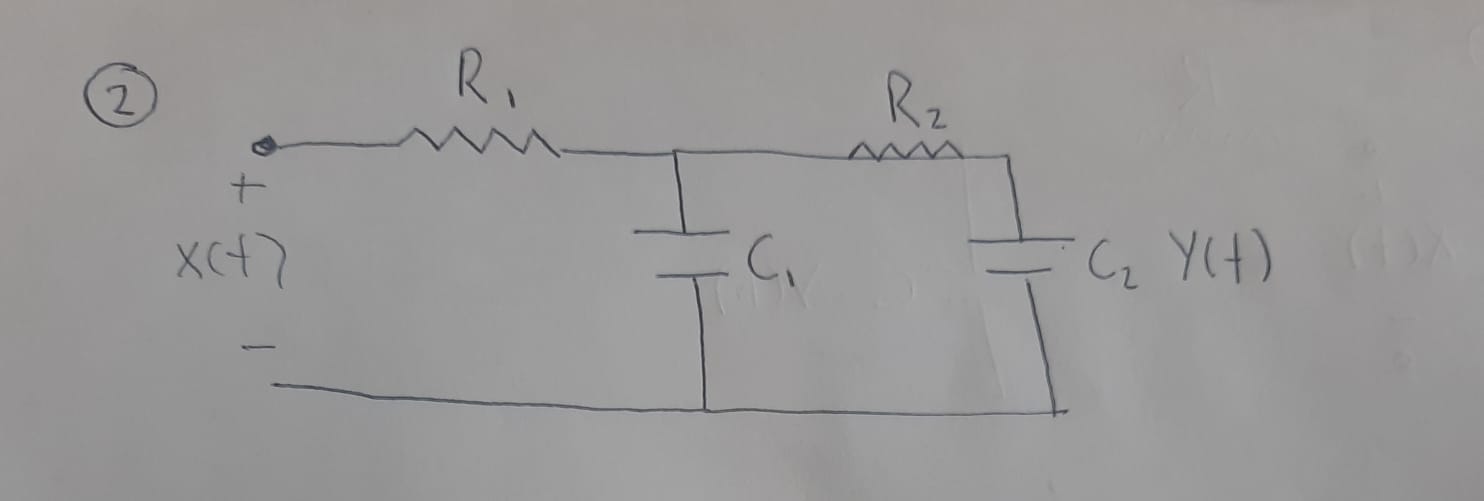 2
R₁
R₂
+
x(t)
C₁
C₂ y(t)
-